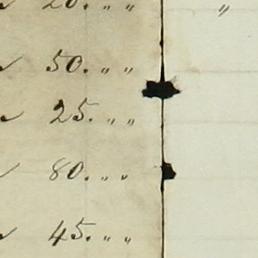 20. " " "
50. " "
25. " "
80. " "
45. " "